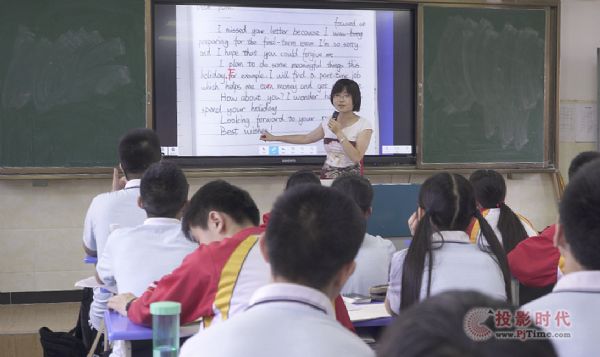 I missed your letter because I was being
preparing for the final-term exam. I'm so sorry
and I hope that you could forgive me.
I plan to do some meaningful things this
holiday, for example. I will find a part-time job
which helps me earn money and get
How about you? I wonder h
spend your holiday.
Looking forward to your r
Best wishes
投影时代
www.PjTime.com